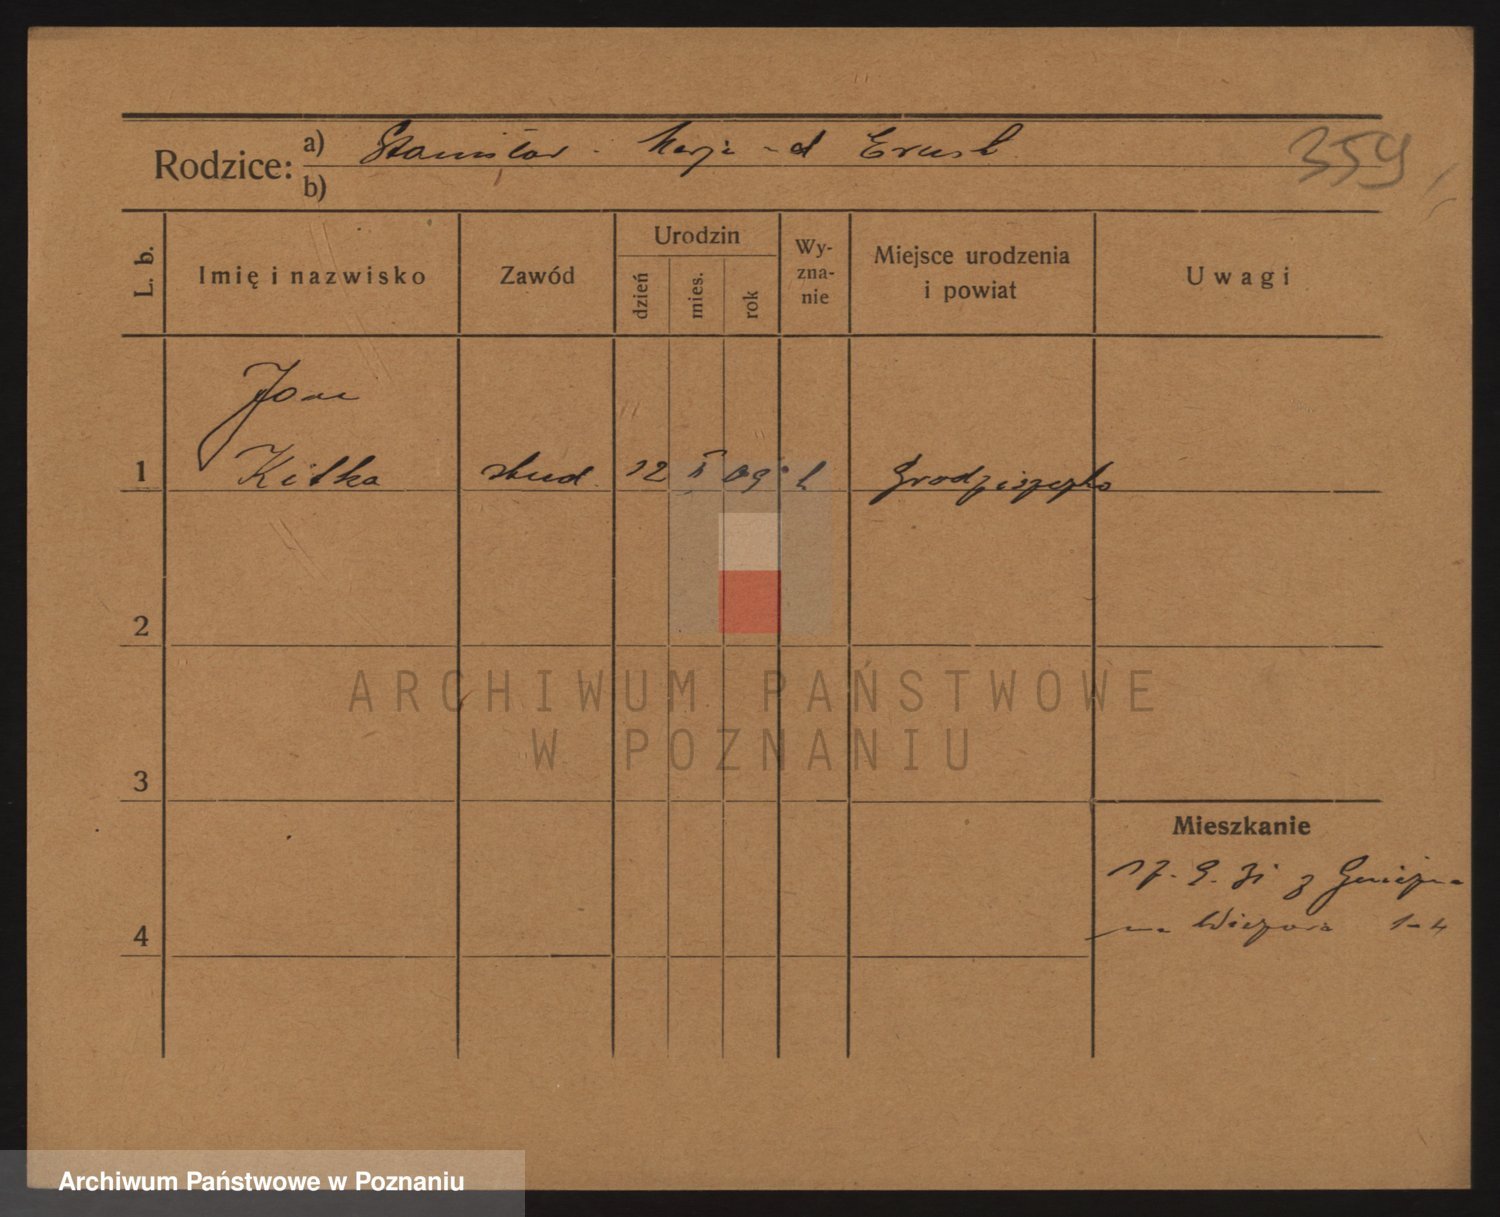 Rodzice: a) Stanisław - Marja - d Ernst
359
b)
L. b.
Imię i nazwisko
Zawód
Urodzin
dzień
mies.
rok
Wy-
zna-
nie
Miejsce urodzenia
i powiat
Uwagi
Jan
1 Kitka stud. 12 II 09 k Grodziszczko
2
ARCHIWUM PAŃSTWOWE
W POZNANIU
3
Mieszkanie
17. 9. 31 z Gniezna
4
na 1-4
Archiwum Państwowe w Poznaniu